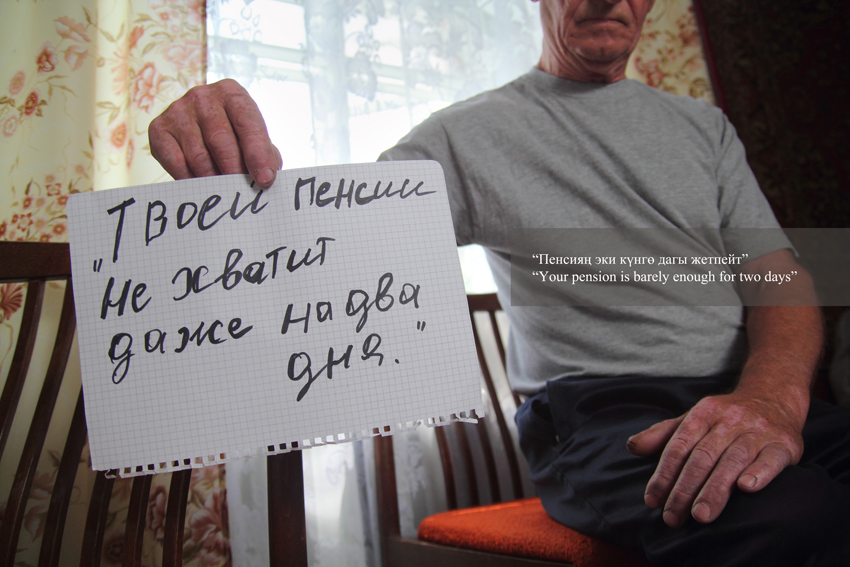 "Твоей пенсии
не хватит
даже на два
дня."
“Пенсияң эки күнгө дагы жетпейт”
“Your pension is barely enough for two days”